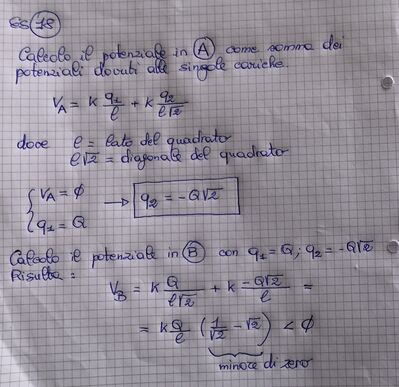 es 18
Calcolo il potenziale in A come somma dei
potenziali dovuti alle singole cariche.
V_A = K q₁/ℓ + K q₂/ℓ√2
dove ℓ = lato del quadrato
ℓ√2 = diagonale del quadrato
{ V_A = ∅
q₁ = Q → q₂ = -Q√2
Calcolo il potenziale in B con q₁ = Q ; q₂ = -Q√2
Risulta:
V_B = K Q/ℓ√2 + K -Q√2/ℓ =
= K Q/ℓ (1/√2 - √2) < ∅
minore di zero